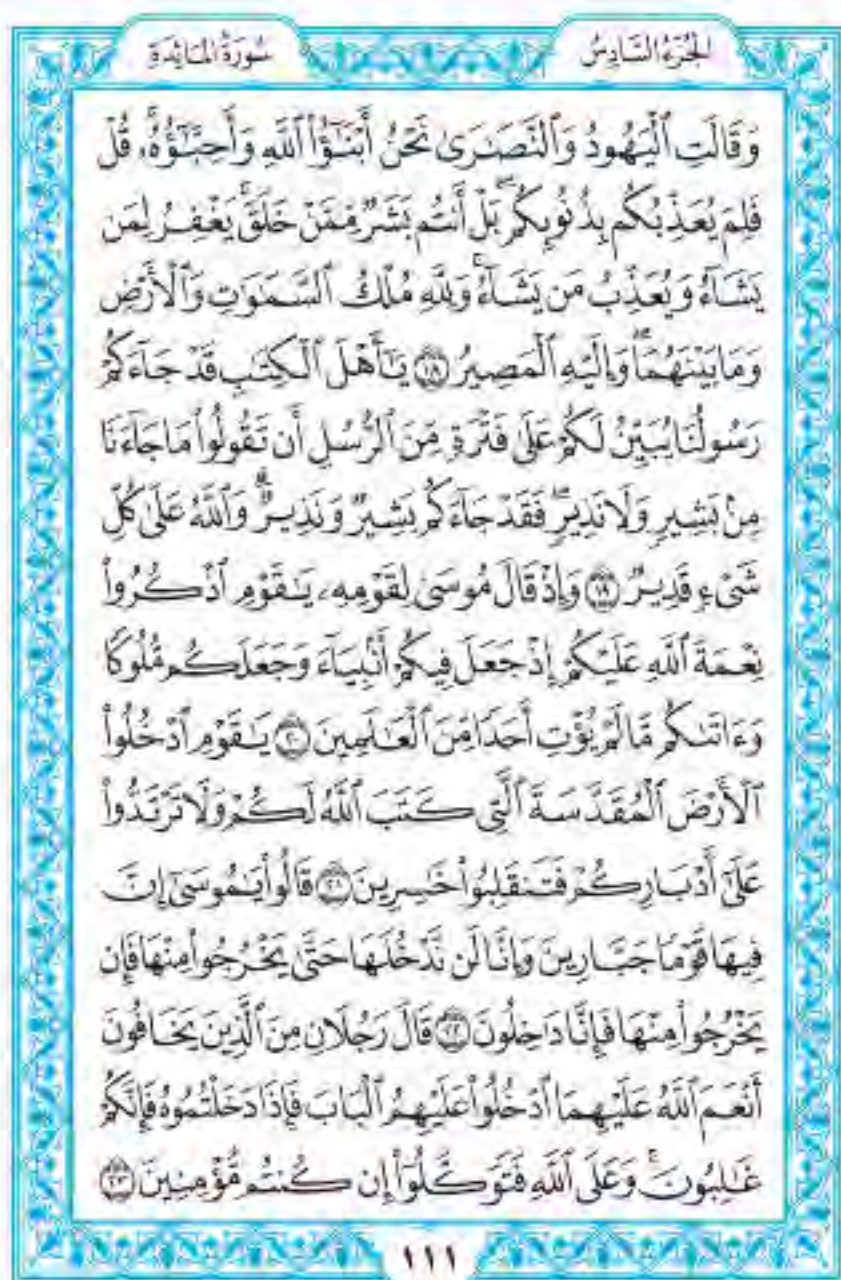 الجُزْءُ السَّادِسُ
سُورَةُ المَائِدَةِ
وَقَالَتِ ٱلْيَهُودُ وَٱلنَّصَـٰرَىٰ نَحْنُ أَبْنَـٰٓؤُا۟ ٱللَّهِ وَأَحِبَّـٰٓؤُهُۥۚ قُلْ
فَلِمَ يُعَذِّبُكُم بِذُنُوبِكُمۖ بَلْ أَنتُم بَشَرٌ مِّمَّنْ خَلَقَۚ يَغْفِرُ لِمَن
يَشَآءُ وَيُعَذِّبُ مَن يَشَآءُۚ وَلِلَّهِ مُلْكُ ٱلسَّمَـٰوَٰتِ وَٱلْأَرْضِ
وَمَا بَيْنَهُمَاۖ وَإِلَيْهِ ٱلْمَصِيرُ ١٨ يَـٰٓأَهْلَ ٱلْكِتَـٰبِ قَدْ جَآءَكُمْ
رَسُولُنَا يُبَيِّنُ لَكُمْ عَلَىٰ فَتْرَةٍ مِّنَ ٱلرُّسُلِ أَن تَقُولُوا۟ مَا جَآءَنَا
مِنۢ بَشِيرٍ وَلَا نَذِيرٍۖ فَقَدْ جَآءَكُم بَشِيرٌ وَنَذِيرٌۗ وَٱللَّهُ عَلَىٰ كُلِّ
شَىْءٍ قَدِيرٌ ١٩ وَإِذْ قَالَ مُوسَىٰ لِقَوْمِهِۦ يَـٰقَوْمِ ٱذْكُرُوا۟
نِعْمَةَ ٱللَّهِ عَلَيْكُمْ إِذْ جَعَلَ فِيكُمْ أَنۢبِيَآءَ وَجَعَلَكُم مُّلُوكًا
وَءَاتَىٰكُم مَّا لَمْ يُؤْتِ أَحَدًا مِّنَ ٱلْعَـٰلَمِينَ ٢٠ يَـٰقَوْمِ ٱدْخُلُوا۟
ٱلْأَرْضَ ٱلْمُقَدَّسَةَ ٱلَّتِى كَتَبَ ٱللَّهُ لَكُمْ وَلَا تَرْتَدُّوا۟
عَلَىٰٓ أَدْبَارِكُمْ فَتَنقَلِبُوا۟ خَـٰسِرِينَ ٢١ قَالُوا۟ يَـٰمُوسَىٰٓ إِنَّ
فِيهَا قَوْمًا جَبَّارِينَ وَإِنَّا لَن نَّدْخُلَهَا حَتَّىٰ يَخْرُجُوا۟ مِنْهَا فَإِن
يَخْرُجُوا۟ مِنْهَا فَإِنَّا دَٰخِلُونَ ٢٢ قَالَ رَجُلَانِ مِنَ ٱلَّذِينَ يَخَافُونَ
أَنْعَمَ ٱللَّهُ عَلَيْهِمَا ٱدْخُلُوا۟ عَلَيْهِمُ ٱلْبَابَ فَإِذَا دَخَلْتُمُوهُ فَإِنَّكُمْ
غَـٰلِبُونَۚ وَعَلَى ٱللَّهِ فَتَوَكَّلُوٓا۟ إِن كُنتُم مُّؤْمِنِينَ ٢٣
١١١